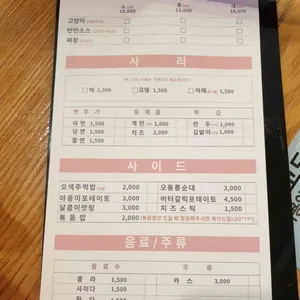 소 중 대
10,000 13,000 16,000
고양이
빈번소스
짜장
사 리
떡 1,500 오뎅 1,500 야채 1,500
면 추 가 유 제 품 튀 김
라 면 1,500 계 란 1,000 만 두 1,500
당 면 1,500 치 즈 2,000 김말이 1,500
쫄 면 1,500
사 이 드
오색주먹밥 2,000 오동통순대 3,000
야옹이포테이토 3,000 버터갈릭포테이토 4,500
달콤이맛탕 3,000 치 즈 스 틱 1,500
볶 음 밥 2,000
음료/주류
음 료 수 주 류
콜 라 1,500 카 스 3,000
사이다 1,500
환 타 1,500